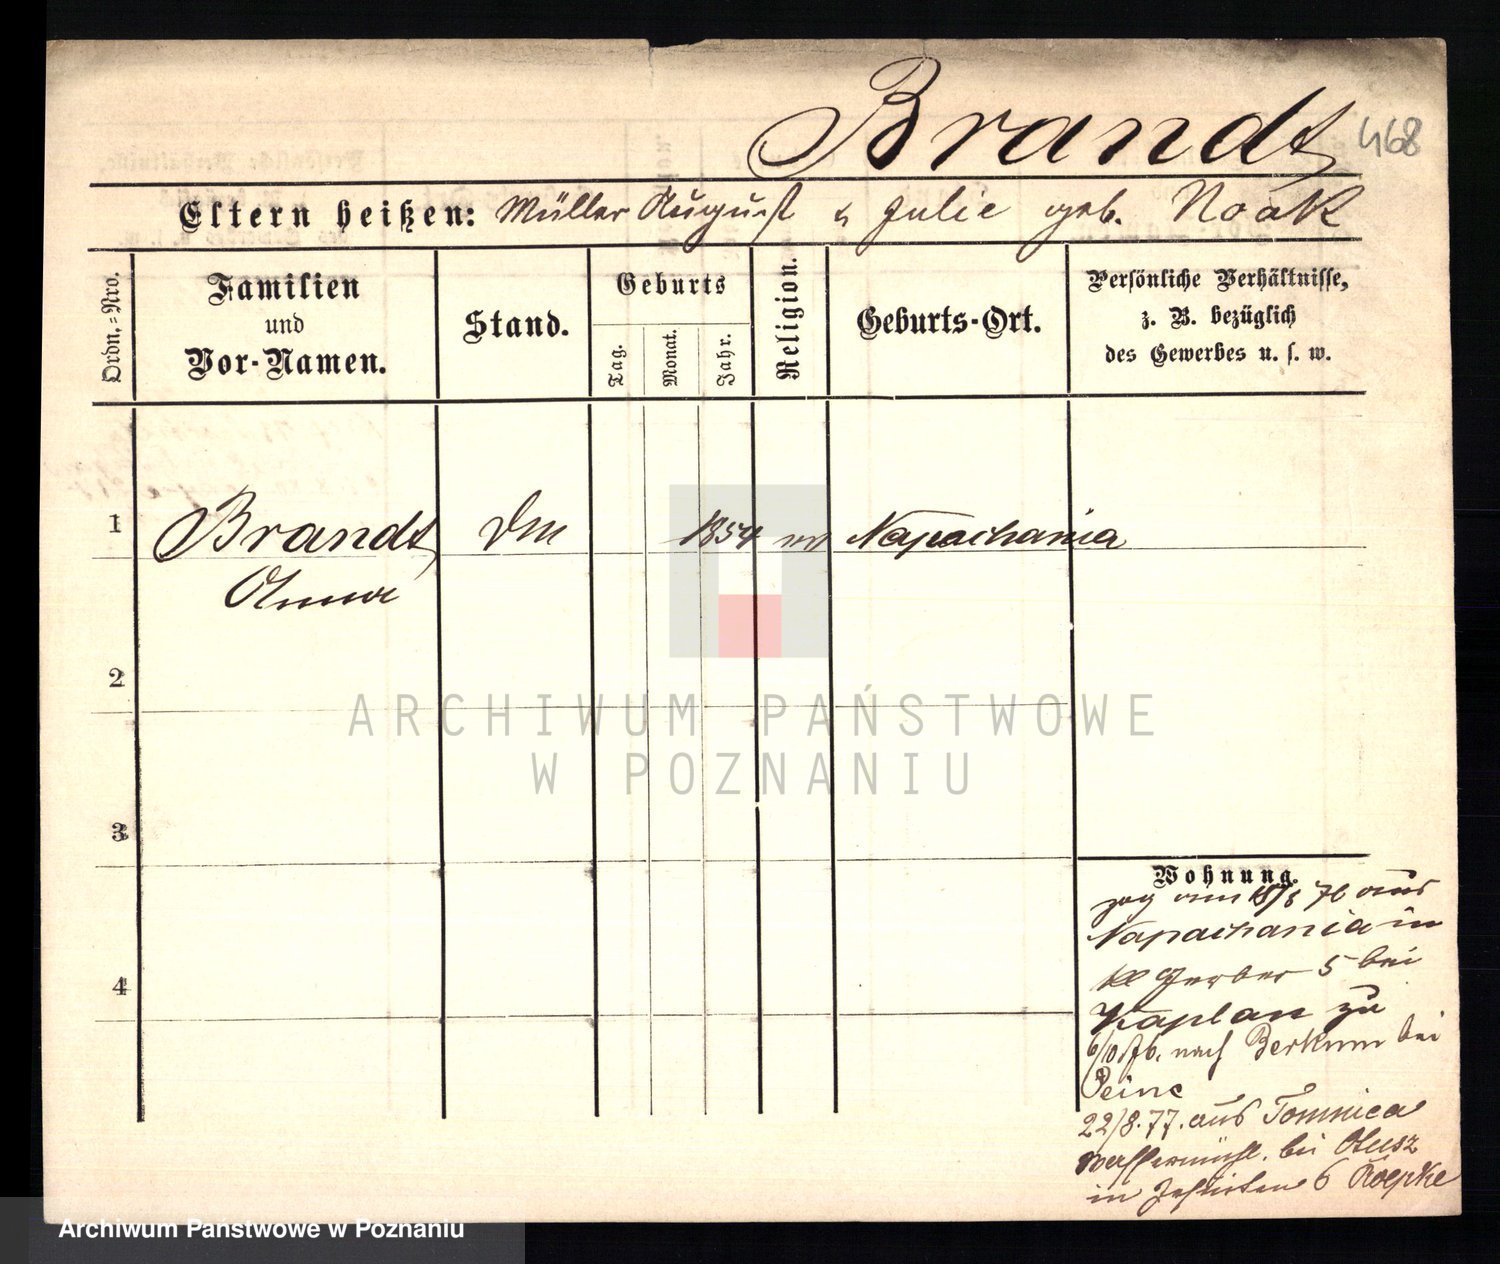 Brandt 468
Eltern heißen: Müller August & Julie geb. Noak
Ordn.-Nro.
Familien
und
Vor-Namen.
Stand.
Geburts
Tag.
Monat.
Jahr.
Religion.
Geburts-Ort.
Persönliche Verhältnisse,
z. B. bezüglich
des Gewerbes u. s. w.
1 Brandt 1854 Napachania
Anna
2
3
4
Wohnung.
zog am 18/8 76 aus
Napachania in
Kl Gerber 5 bei
Kaplan zu
6/10 76. nach Berkum bei
Peine
22/8.77. aus Tomnica
bei
in Jesuiten 6
ARCHIWUM PAŃSTWOWE
W POZNANIU
Archiwum Państwowe w Poznaniu